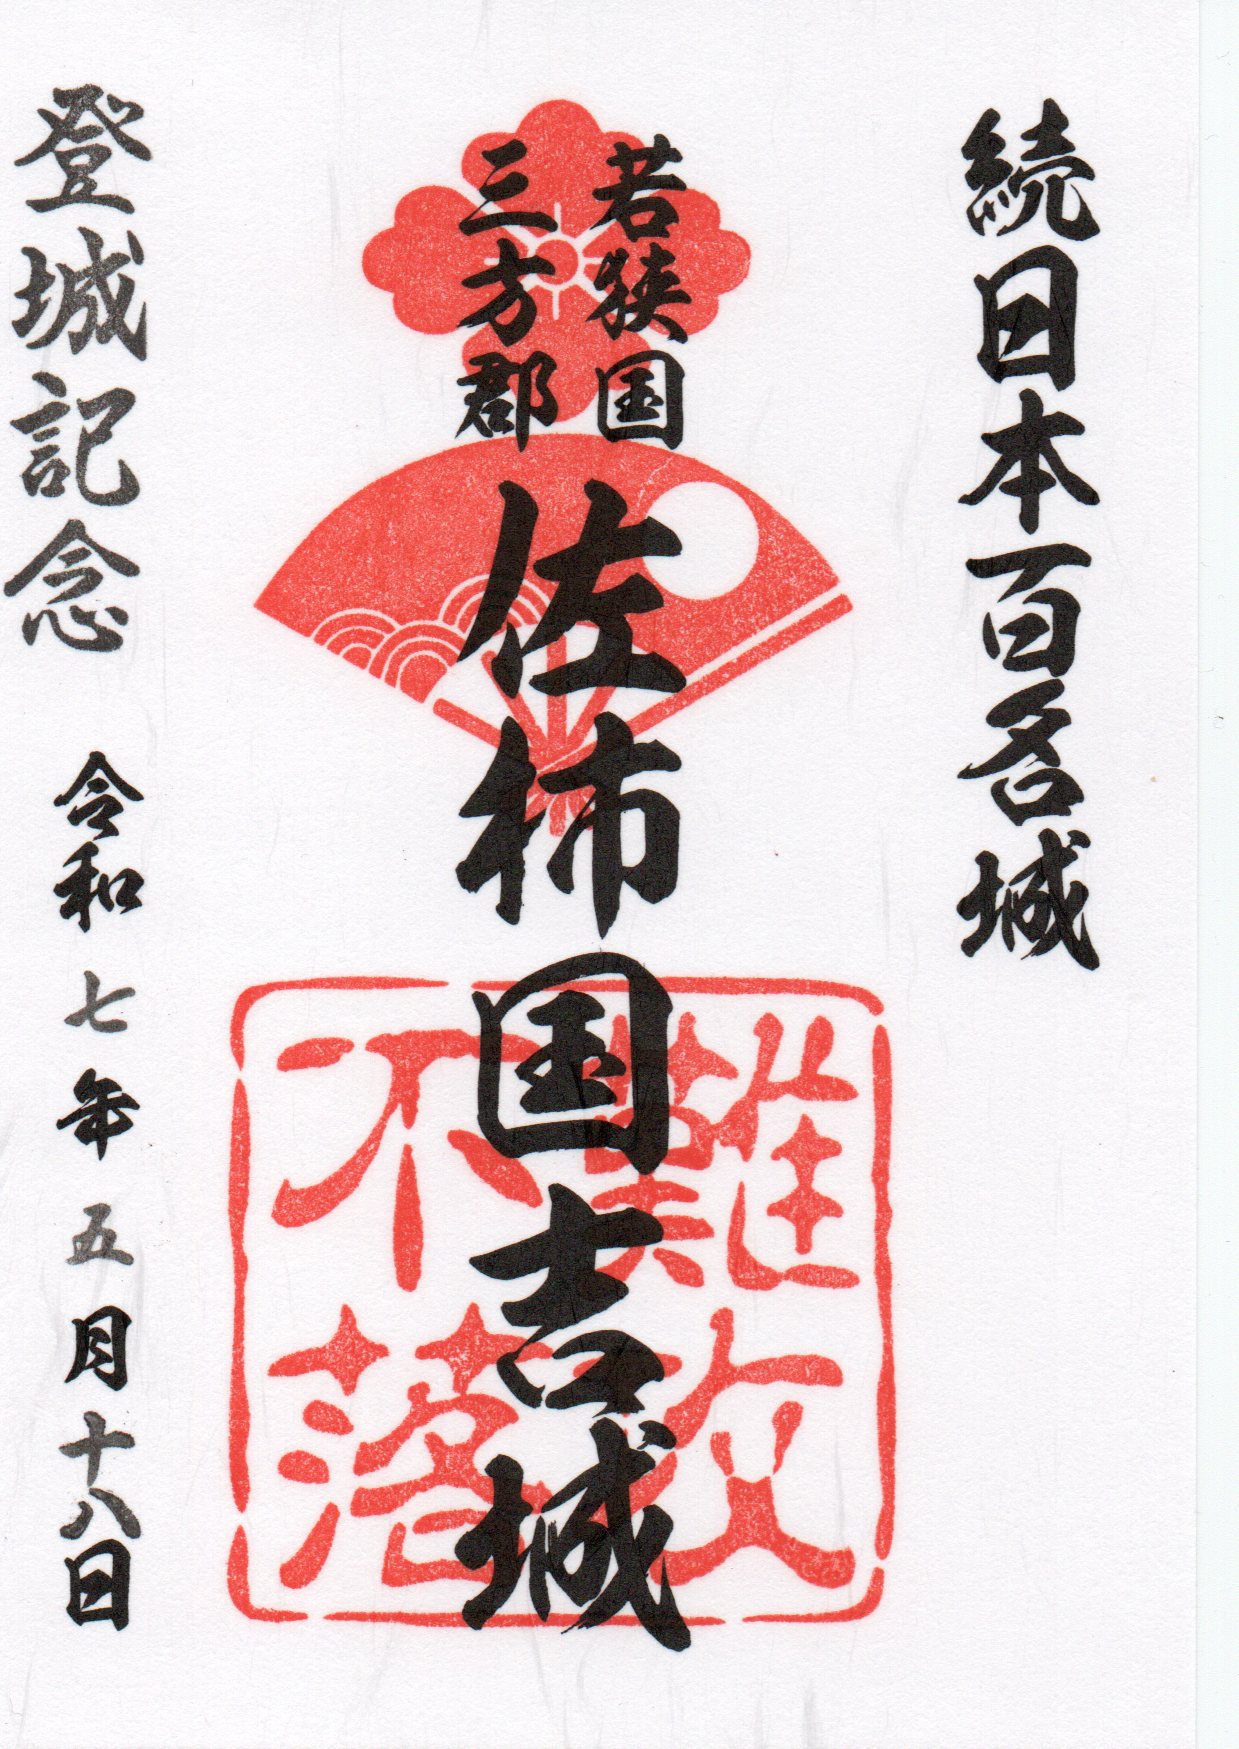 続日本百名城
若狭国
三方郡
佐柿国吉城
難攻
不落
登城記念 令和七年五月十八日